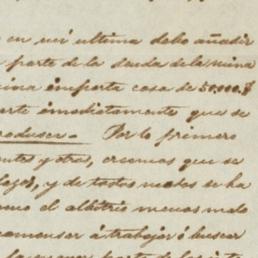 en mi ultima debo añadir
parte de la deuda de la mina
ina importa cosa de 50.000 $
arte imediatamente que se
roduzca. Por lo primero
ente y otras, creemos que se
lazos, y de todos modos se ha
omo el albitrio menos malo
comenzar á trabajar ó buscar